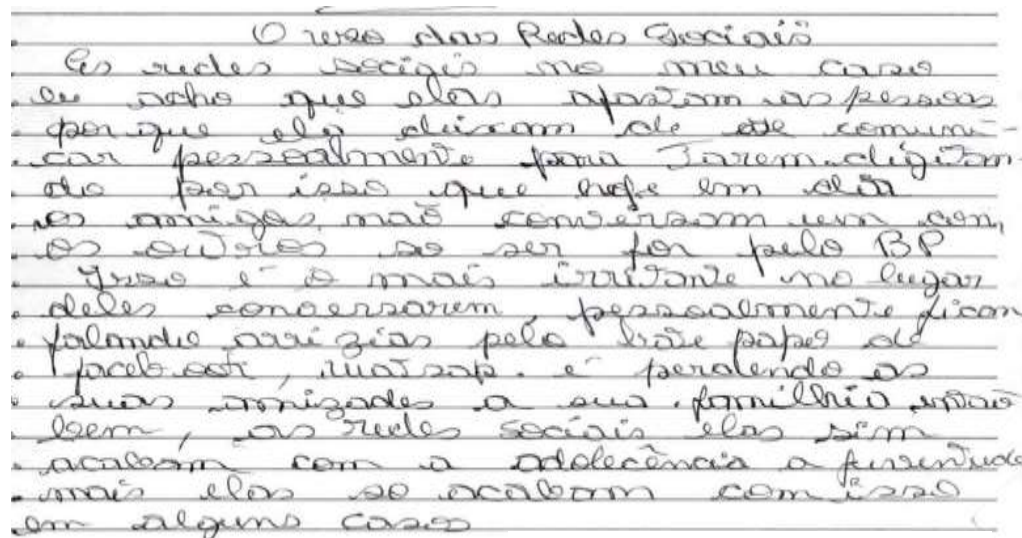 O uso das Redes Sociais
As redes sociais no meu caso
eu acho que elas afastam as pessoas
por que ela deixam de se comuni-
car pessoalmente para digitan-
do por isso que hoje em dia
os amigos não conversam um com
os outros so ser for pelo BP
Isso é o mais irritante no lugar
deles conversarem pessoalmente ficam
falando pelo bate papo de
facebook, watsap. e perdendo as
suas amizades a sua familhia então
bem, as redes sociais elas sim
acabam com a adolecência a juventude
mais elas so acabam com isso
em alguns casos